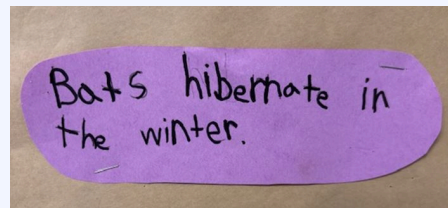 Bats hibernate in
the winter.